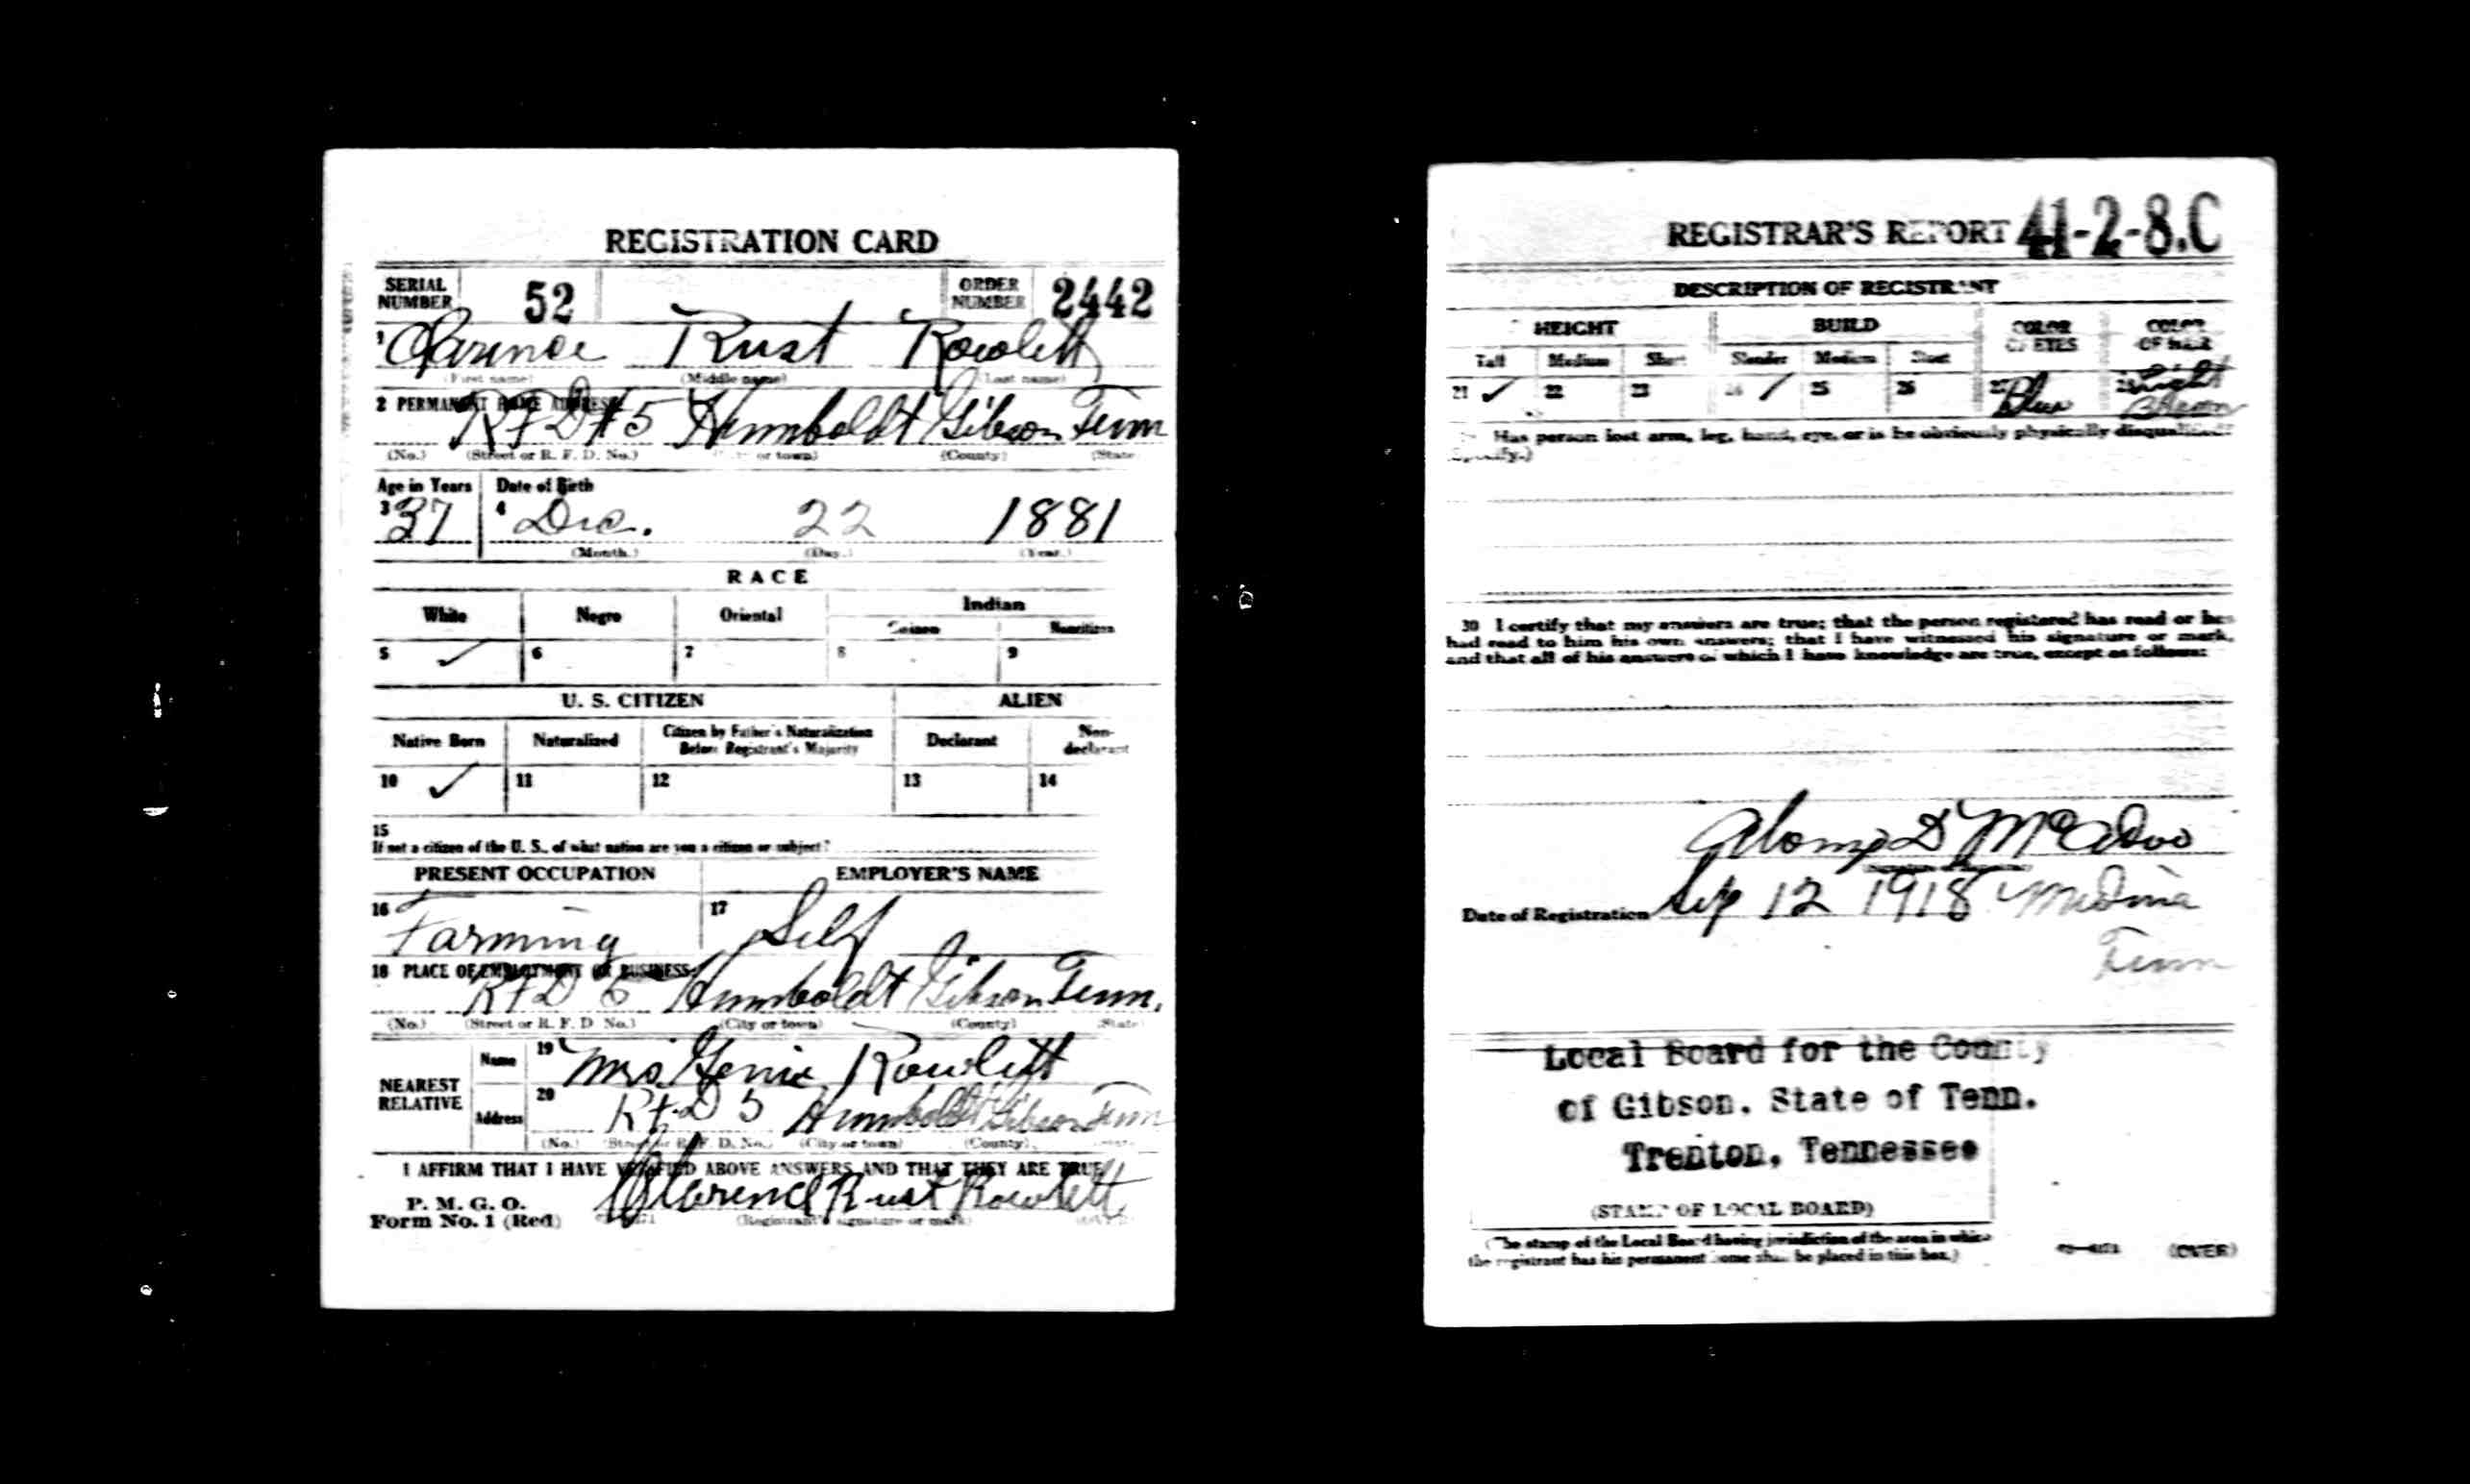 REGISTRATION CARD
SERIAL NUMBER 52 ORDER NUMBER 2442
1 Clarence Rust Rowlett
(First name) (Middle name) (Last name)
2 PERMANENT HOME ADDRESS
RFD #5 Humboldt Gibson Tenn
(No.) (Street or R. F. D. No.) (City or town) (County) (State)
Age in Years Date of Birth
3 37 4 Dec. 22 1881
(Month.) (Day.) (Year.)
RACE
White Negro Oriental Indian
Citizen Noncitizen
5 ✓ 6 7 8 9
U. S. CITIZEN ALIEN
Native Born Naturalized Citizen by Father's Naturalization Before Registrant's Majority Declarant Non-declarant
10 ✓ 11 12 13 14
15
If not a citizen of the U. S., of what nation are you a citizen or subject?
PRESENT OCCUPATION EMPLOYER'S NAME
16 Farming 17 Self
18 PLACE OF EMPLOYMENT OR BUSINESS
RFD 5 Humboldt Gibson Tenn.
(No.) (Street or R. F. D. No.) (City or town) (County) (State)
NEAREST RELATIVE
Name 19 Mrs Rowlett
Address 20 RFD 5 Humboldt Gibson Tenn
(No.) (Street or R. F. D. No.) (City or town) (County)
I AFFIRM THAT I HAVE VERIFIED ABOVE ANSWERS AND THAT THEY ARE TRUE
P. M. G. O.
Form No. 1 (Red) Clarence Rust Rowlett
(Registrant's signature or mark)
REGISTRAR'S REPORT 41-2-8.C
DESCRIPTION OF REGISTRANT
HEIGHT BUILD COLOR OF EYES COLOR OF HAIR
Tall Medium Short Slender Medium Stout
21 ✓ 22 23 24 ✓ 25 26 27 Blue 28 Light Brown
Has person lost arm, leg, hand, eye, or is he obviously physically disqualified?
(Specify.)
30 I certify that my answers are true; that the person registered has read or has
had read to him his own answers; that I have witnessed his signature or mark,
and that all of his answers of which I have knowledge are true, except as follows:
Alonzo D McAdoo
Date of Registration Sep 12 1918 Medina
Tenn
Local Board for the County
of Gibson. State of Tenn.
Trenton, Tennessee
(STAMP OF LOCAL BOARD)
(The stamp of the Local Board having jurisdiction of the area in which
the registrant has his permanent home shall be placed in this box.)
(OVER)